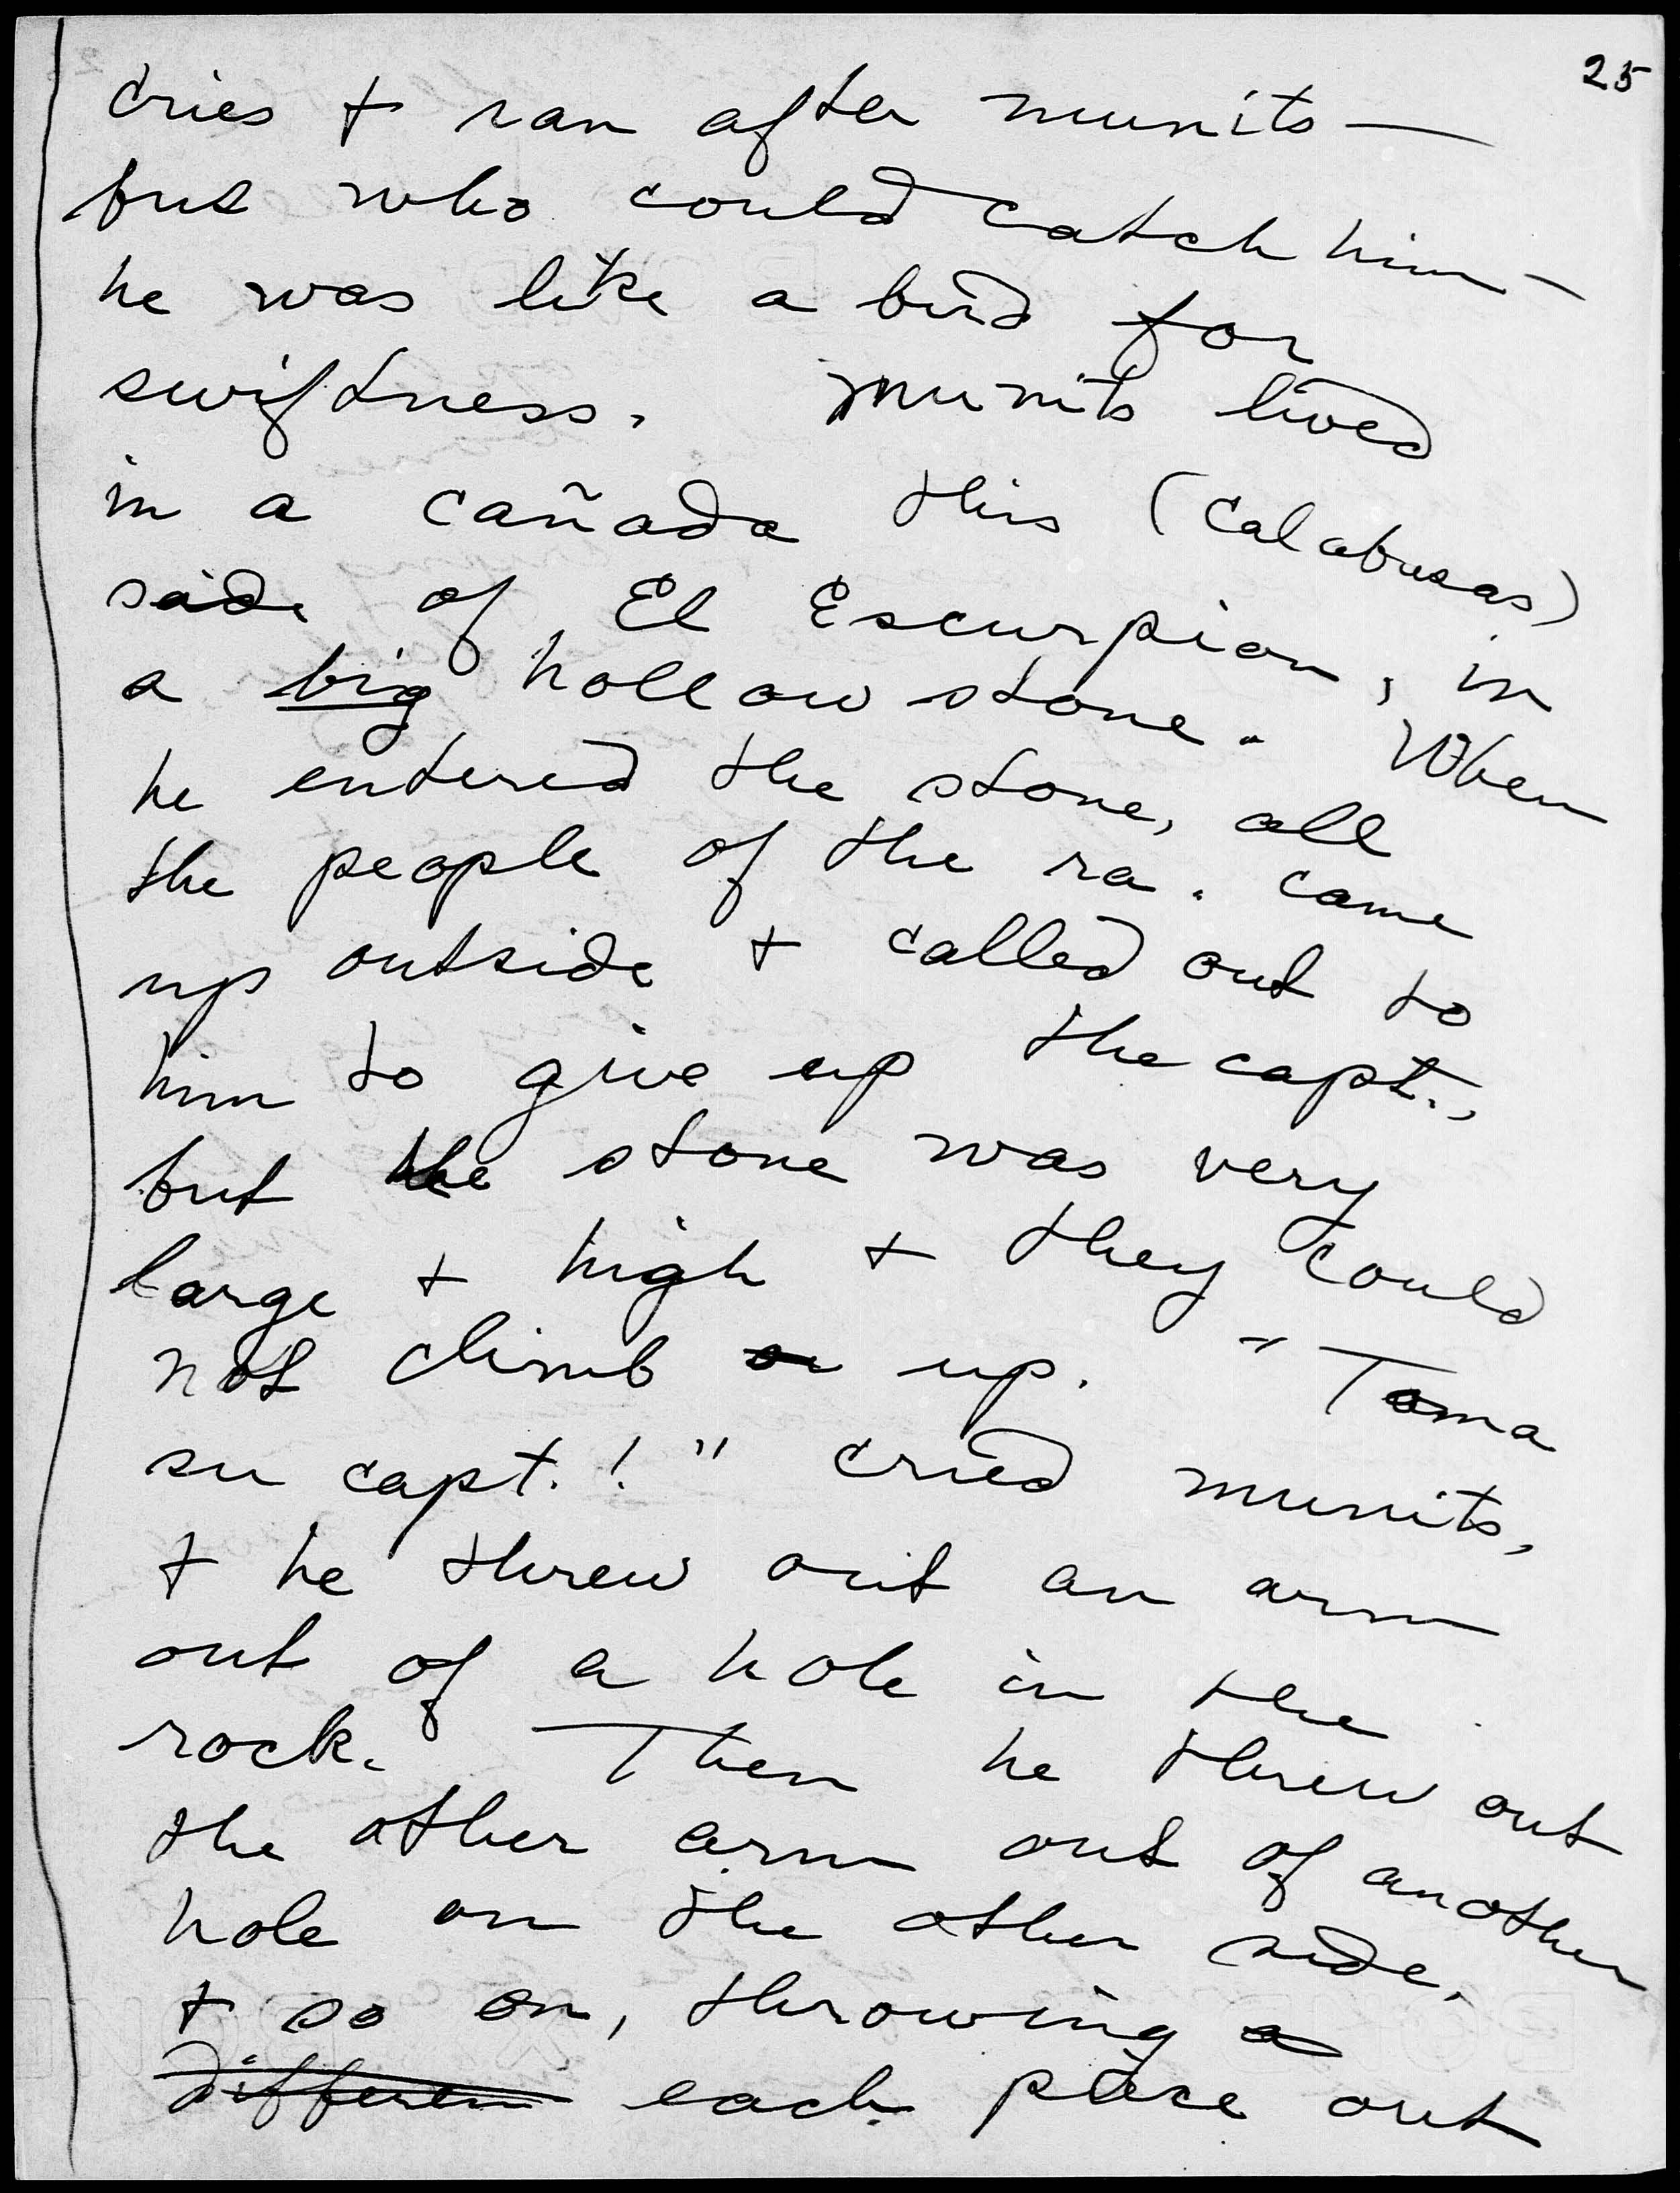 25
cries + ran after munits —
but who could catch him —
he was like a bird for
swiftness. Munits lived
in a cañada this (Calabasas)
side of El Escurpion, in
a big hollow stone. When
he entered the stone, all
the people of the ra. came
up outside + called out to
him to give up the capt.,
but the stone was very
large + high + they could
not climb or up. "Toma
su capt.!" cried munits,
+ he threw out an arm
out of a hole in the
rock. Then he threw out
the other arm out of another
hole on the other side,
+ so on, throwing a
differen each piece out